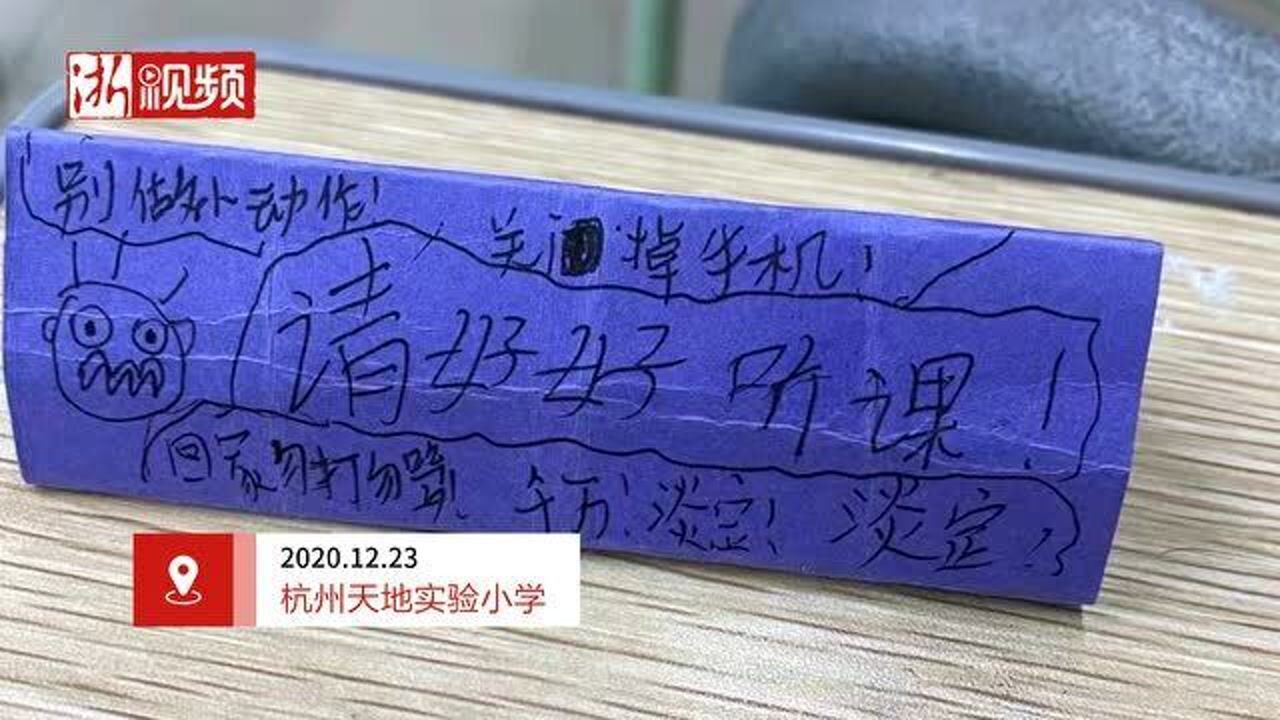 浙视频
别做小动作!
关掉手机!
请好好听课!
回家勿打勿骂!千万!淡定!淡定!
2020.12.23
杭州天地实验小学